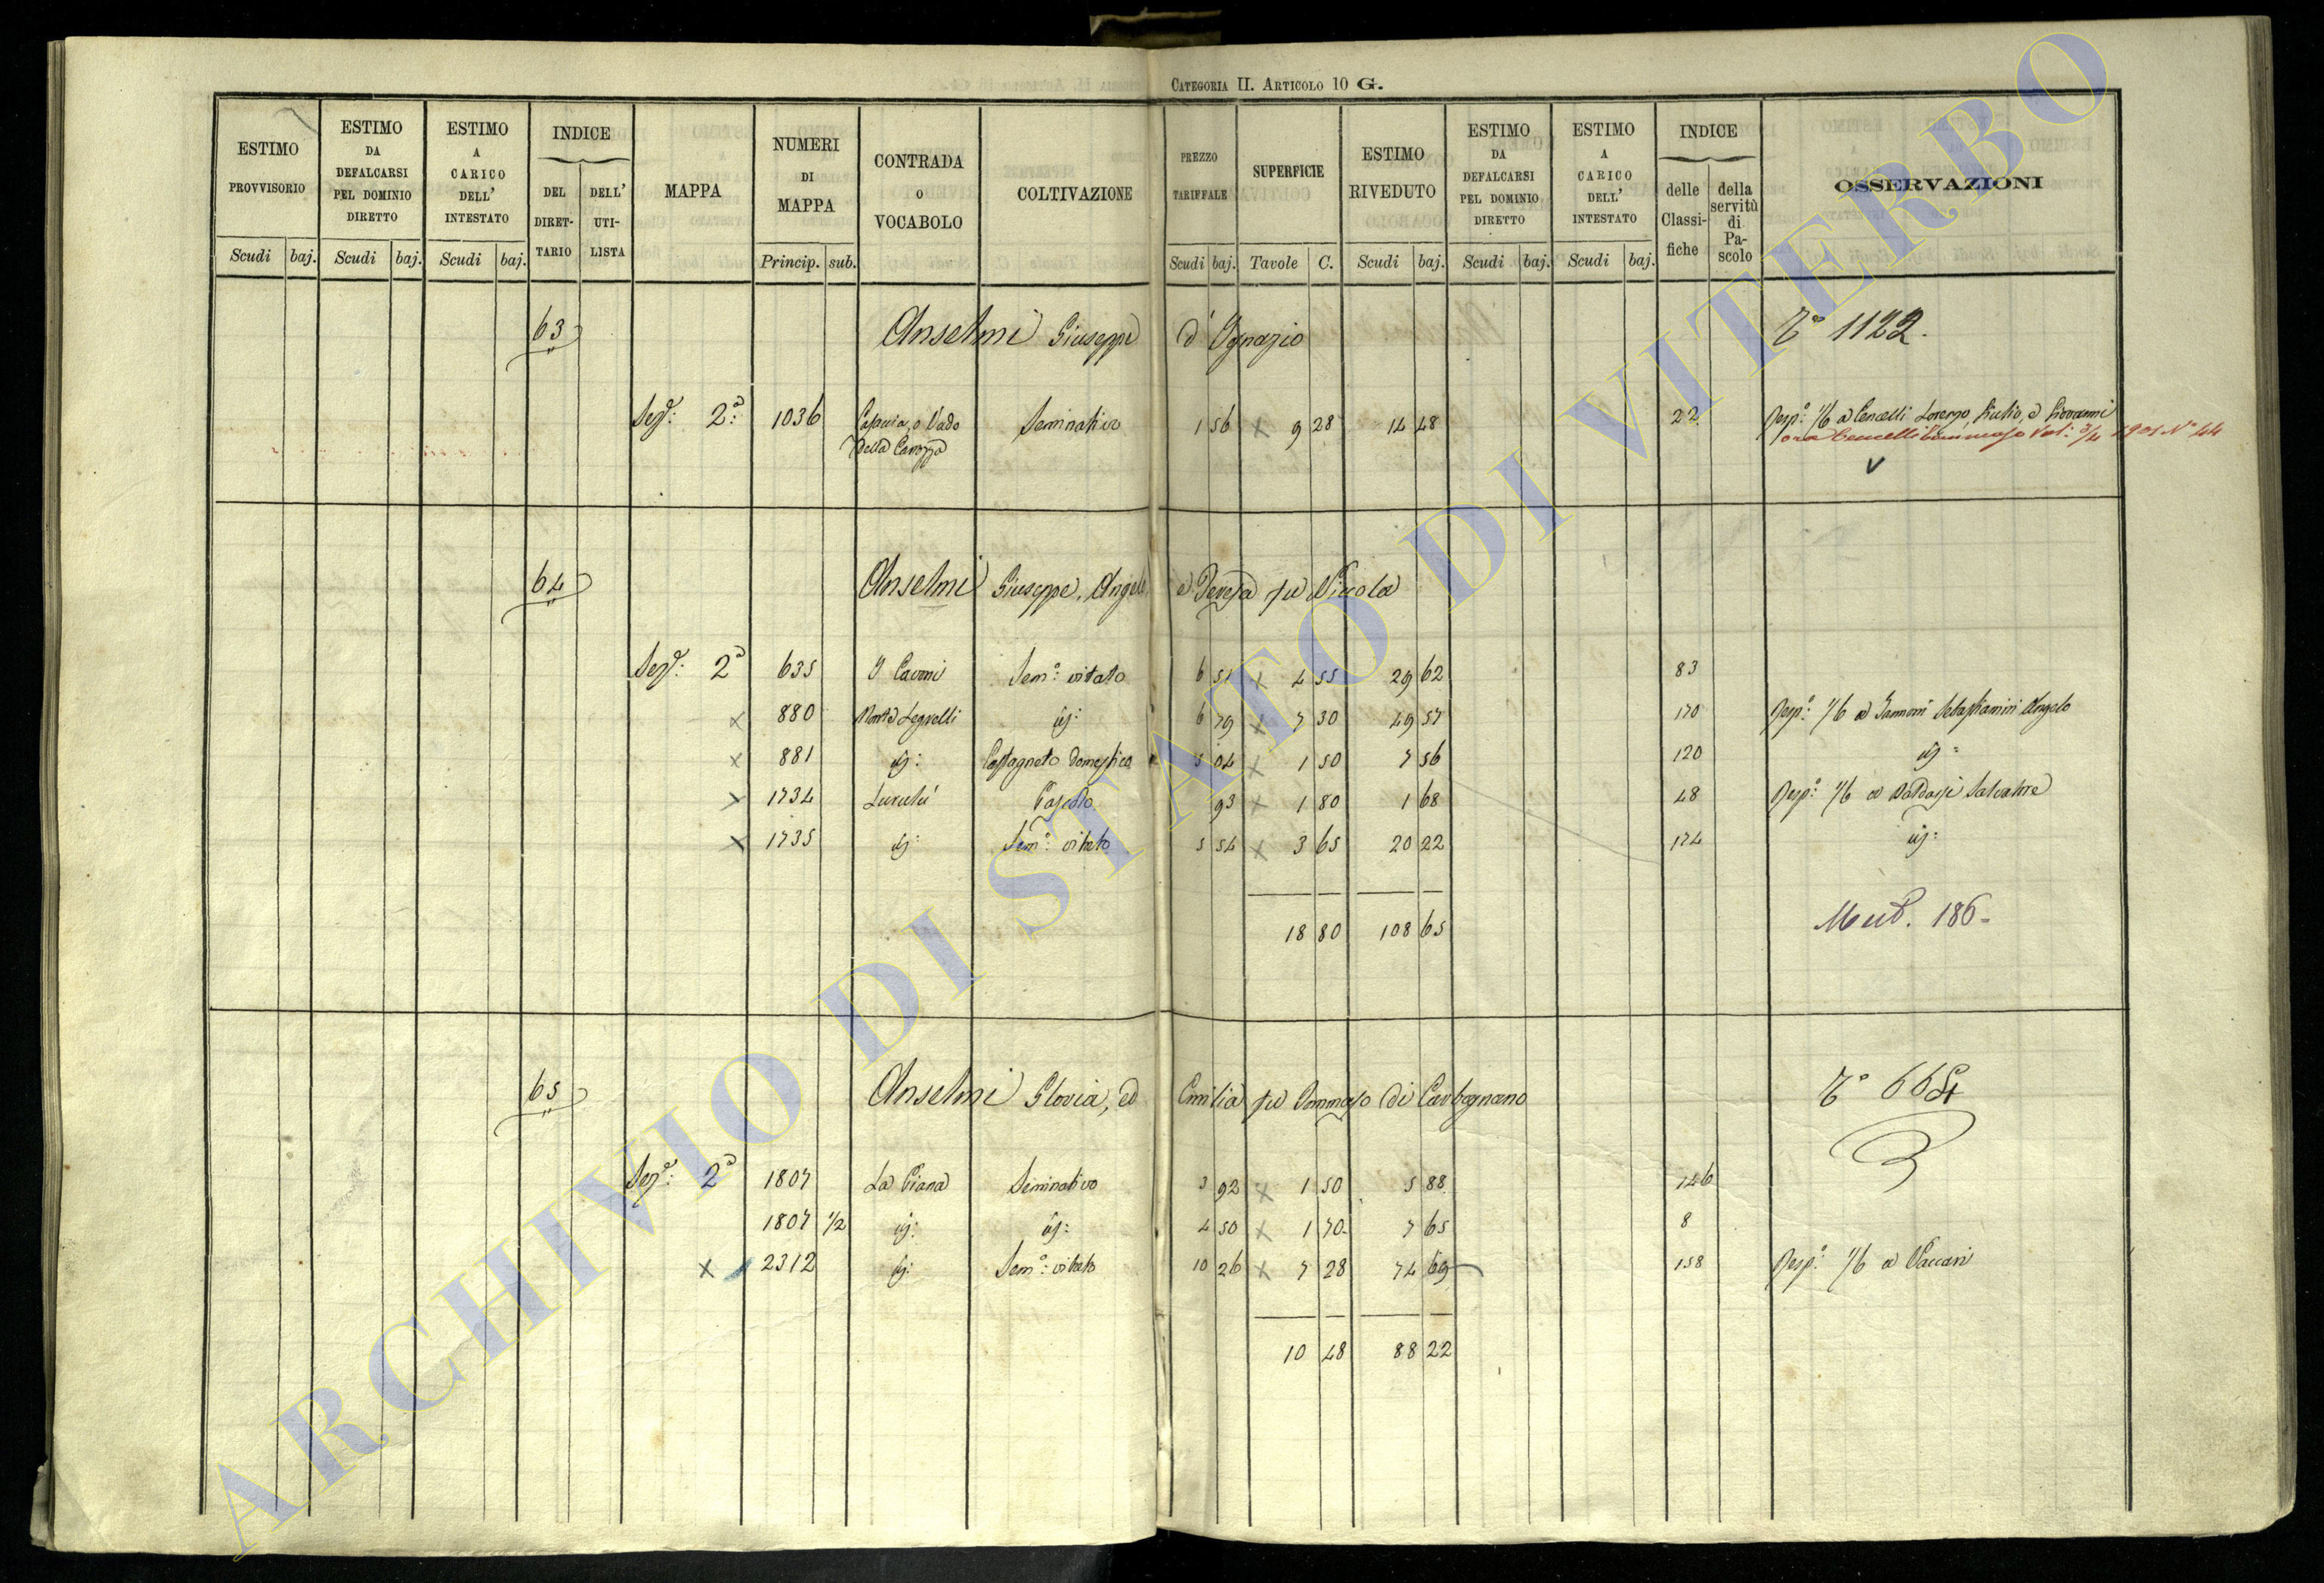 CATEGORIA II. ARTICOLO 10 G.
ESTIMO PROVVISORIO Scudi baj.
ESTIMO DA DEFALCARSI PEL DOMINIO DIRETTO Scudi baj.
ESTIMO A CARICO DELL' INTESTATO Scudi baj.
INDICE DEL DIRET-TARIO DELL' UTI-LISTA
MAPPA
NUMERI DI MAPPA Princip. sub.
CONTRADA o VOCABOLO
COLTIVAZIONE
PREZZO TARIFFALE Scudi baj.
SUPERFICIE Tavole C.
ESTIMO RIVEDUTO Scudi baj.
ESTIMO DA DEFALCARSI PEL DOMINIO DIRETTO Scudi baj.
ESTIMO A CARICO DELL' INTESTATO Scudi baj.
INDICE delle Classi-fiche della servitù di Pa-scolo
OSSERVAZIONI
63 Anselmi Giuseppe d'Ignazio 1122.
Sezᵉ: 2ª: 1036 o Vado Seminativo 1 56 × 9 28 14 48 22 Resp: 1/6 a Cencelli Lorenzo, Giulio, e Giovanni
della ora Cencelli Tommaso 1901 Nº 44
64 Anselmi Giuseppe, Angelo, e Teresa fu Niccola
Sezᵉ: 2ª 635 I Cavoni Semº: vitato 6 51 × 4 55 29 62 83
× 880 6 79 × 7 30 49 57 170 Resp: 1/6 a Sebastiano Angelo
× 881 Castagneto domestico 5 04 × 1 50 7 56 120
× 1734 Pascolo 93 × 1 80 1 68 48 Resp: 1/6 a Salvatore
× 1735 Semº: vitato 5 54 × 3 65 20 22 174
18 80 108 65 186
65 Anselmi Gloria, ed Emilia fu Tommaso di Carbognano
Sezᵉ: 2ª 1807 La Piana Seminativo 3 92 × 1 50 5 88 146
1807 1/2 4 50 × 1 70 7 65 8
× 2312 Semº: vitato 10 26 × 7 28 74 69 158 Resp: 1/6 a Vaccari
10 48 88 22
ARCHIVIO DI STATO DI VITERBO